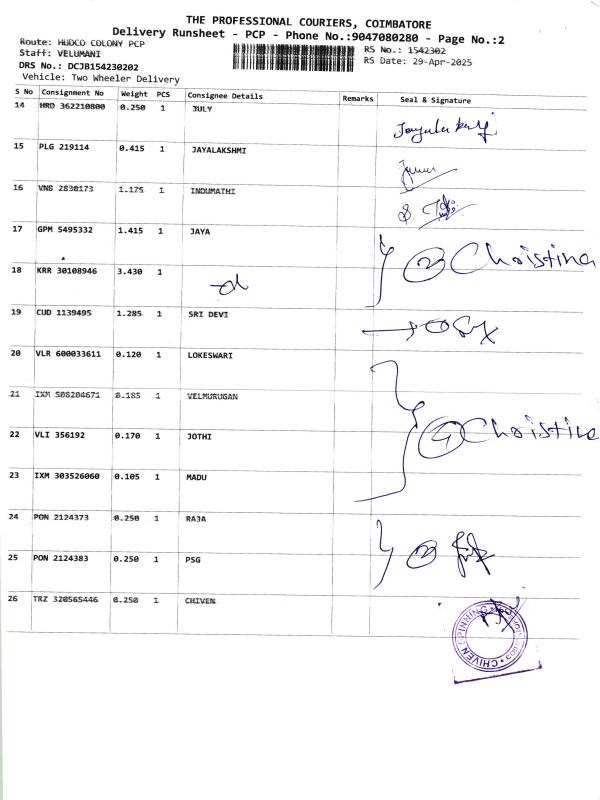 THE PROFESSIONAL COURIERS, COIMBATORE
Delivery Runsheet - PCP - Phone No.:9047080280 - Page No.:2
Route: HUDCO COLONY PCP
RS No.: 1542302
Staff: VELUMANI
RS Date: 29-Apr-2025
DRS No.: DCJB154230202
Vehicle: Two Wheeler Delivery
S No Consignment No Weight PCS Consignee Details Remarks Seal & Signature
14 HRD 362210800 0.250 1 JULY
15 PLG 219114 0.415 1 JAYALAKSHMI
16 VNB 2830173 1.175 1 INDUMATHI
17 GPM 5495332 1.415 1 JAYA
② Christina
18 KRR 30108946 3.430 1
19 CUD 1139495 1.285 1 SRI DEVI
20 VLR 600033611 0.120 1 LOKESWARI
21 IXM 508204671 0.185 1 VELMURUGAN
22 VLI 356192 0.170 1 JOTHI
④ Christina
23 IXM 303526060 0.105 1 MADU
24 PON 2124373 0.250 1 RAJA
25 PON 2124383 0.250 1 PSG
②
26 TRZ 320565446 0.250 1 CHIVEN
CHIVEN SPINNING